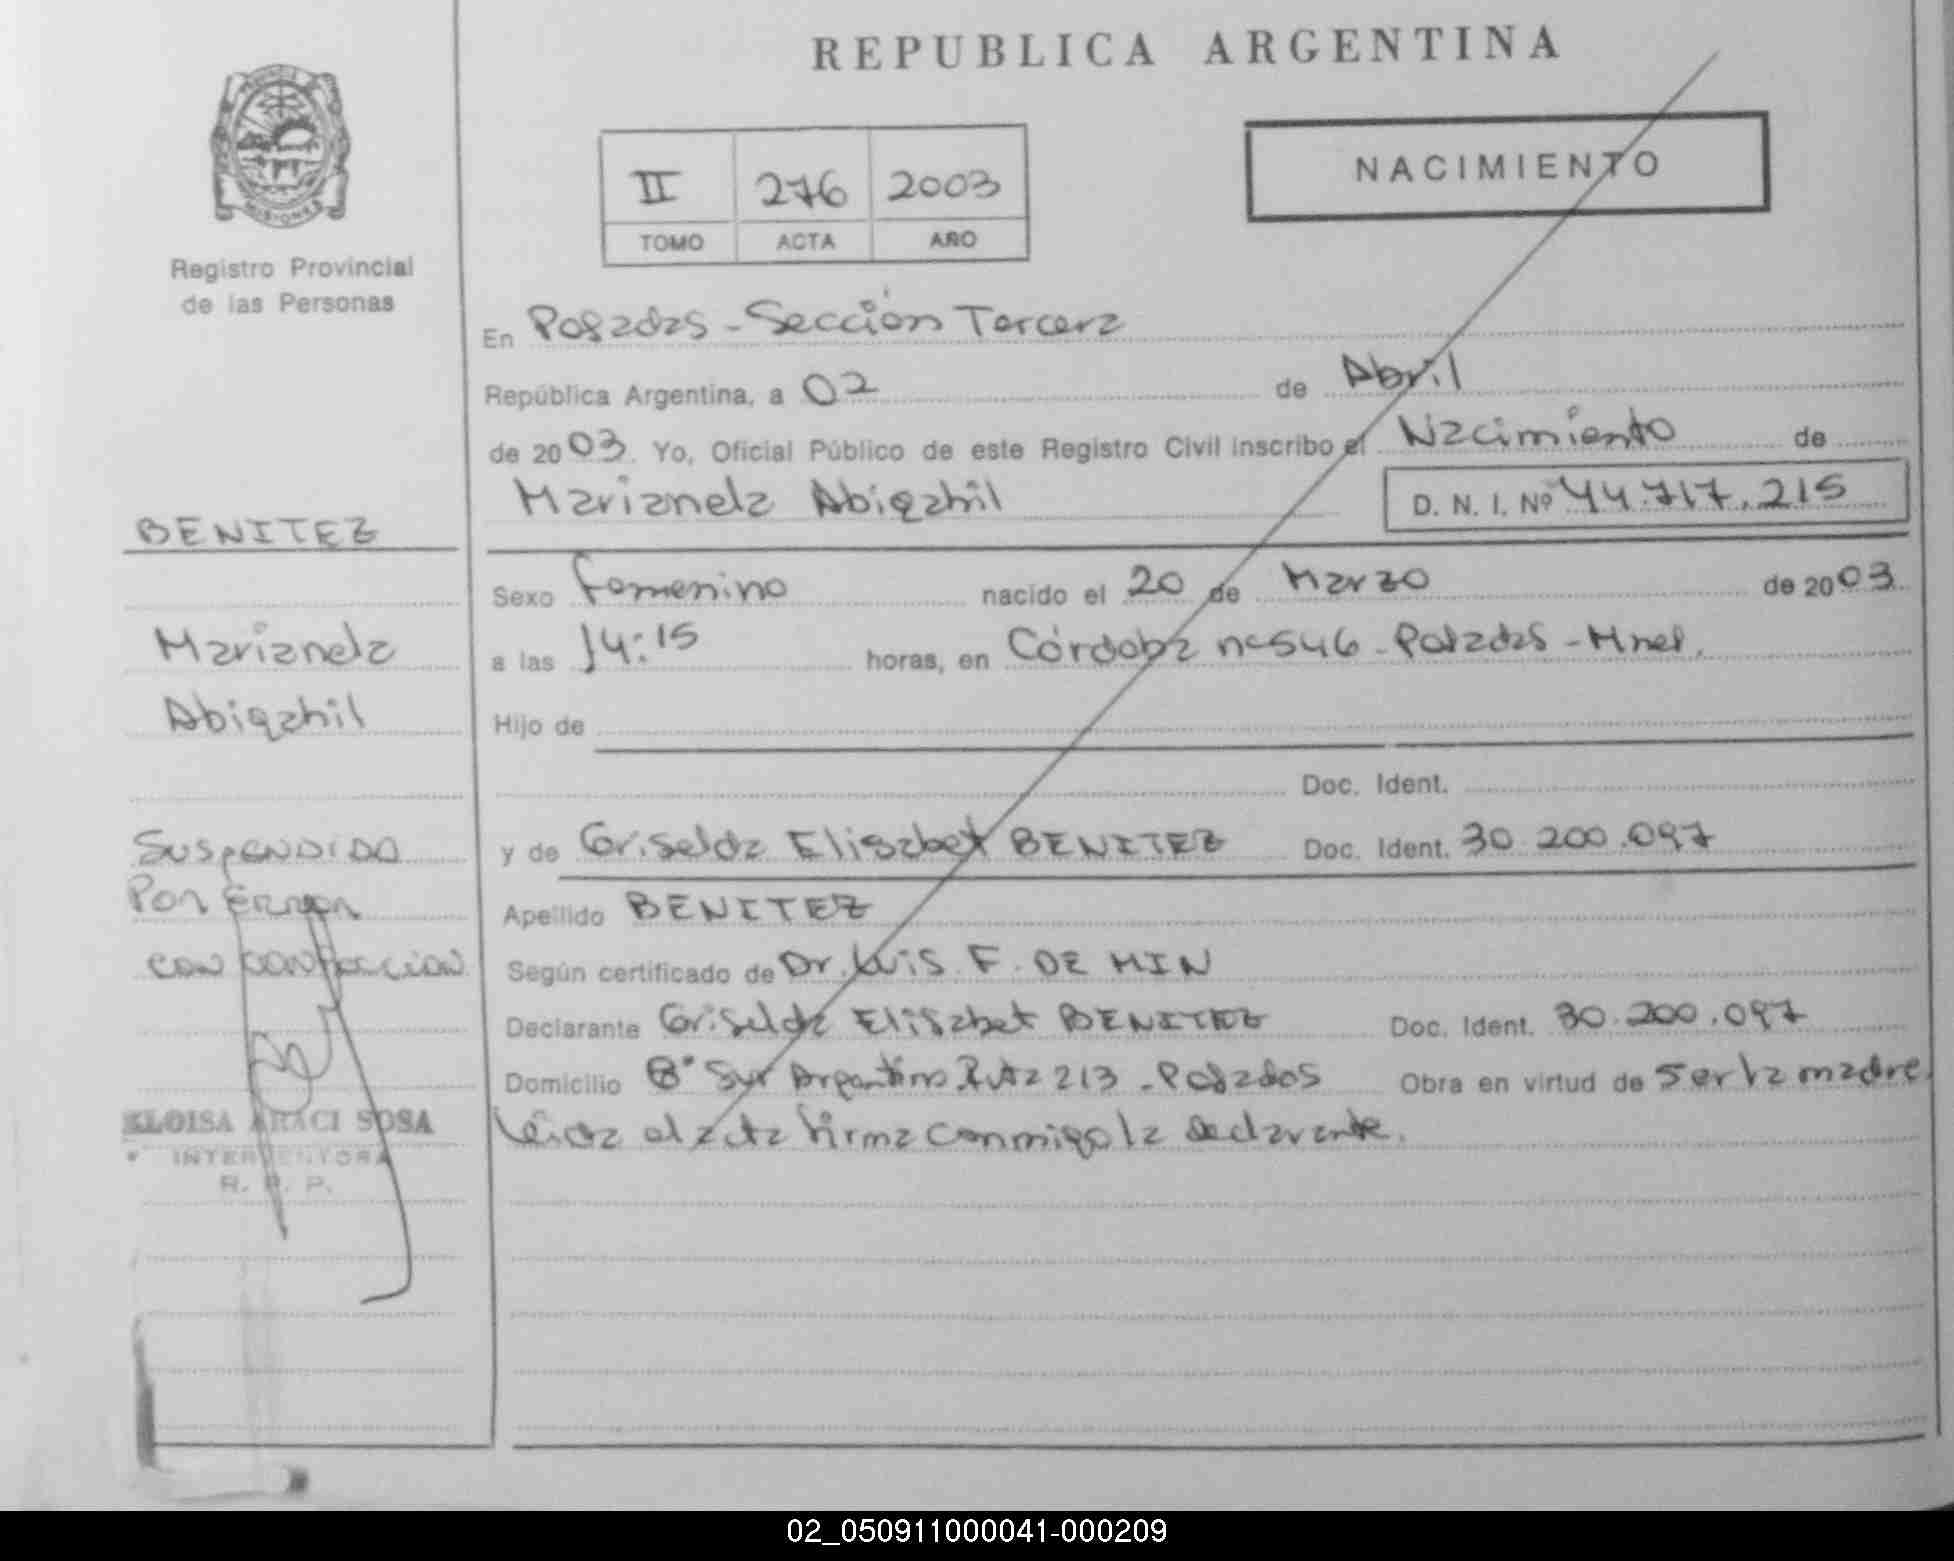 REPUBLICA ARGENTINA
MISIONES
Registro Provincial
de las Personas
II 276 2003
TOMO ACTA AÑO
NACIMIENTO
En Posadas - Sección Tercera
República Argentina, a 02 de Abril
de 2003. Yo, Oficial Público de este Registro Civil inscribo el Nacimiento de
Marianela Abigahil D. N. I. Nº 44.717.215
Sexo Femenino nacido el 20 de Marzo de 2003
a las 14:15 horas, en Córdoba nº 546 - Posadas - Mnes.
Hijo de
Doc. Ident.
y de Griselda Elisabet BENITEZ Doc. Ident. 30.200.097
Apellido BENITEZ
Según certificado de Dr. Luis F. DE MIN
Declarante Griselda Elisabet BENITEZ Doc. Ident. 30.200.097
Domicilio Bº Sur Argentino Ruta 213 - Posadas Obra en virtud de ser la madre
Leída el acta firma conmigo la declarante.
BENITEZ
Marianela
Abigahil
Suspendido
Por Error
con confeccion
ELOISA ARACI SOSA
INTERVENTORA
R. P. P.
02_050911000041-000209